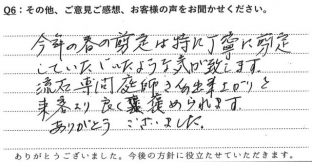 Q6：その他、ご意見ご感想、お客様の声をお聞かせください。
今年の春の剪定は特に丁寧に剪定
していただいたような気が致します。
流石専門庭師さん出来上がりと
来客より良く褒められます。
ありがとうございました。
ありがとうございました。今後の方針に役立たせていただきます。